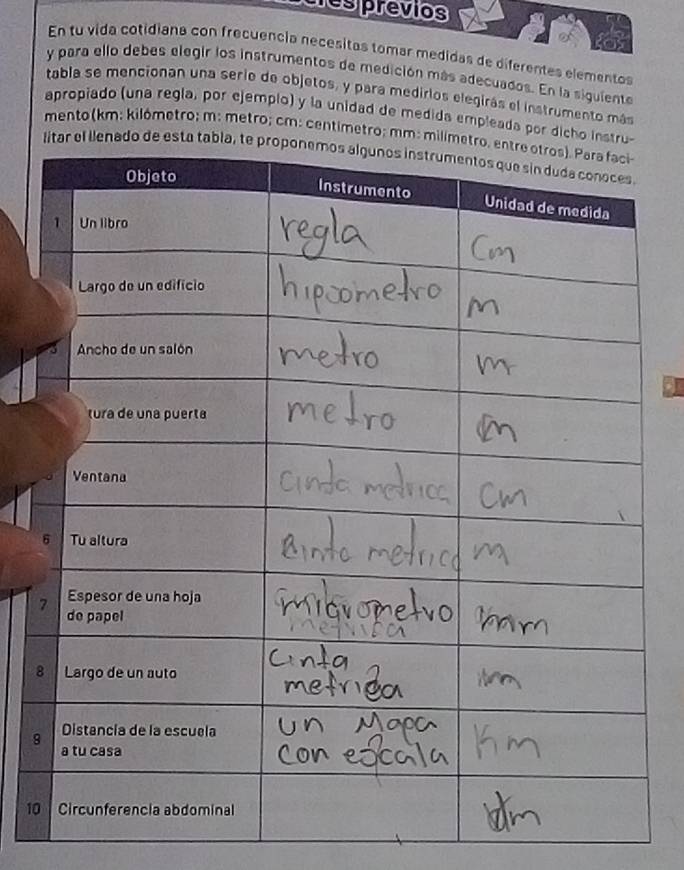 previos
En tu vida cotidiana con frecuencia necesitas tomar medidas de diferentes elementos
y para ello debes elegir los instrumentos de medición más adecuados. En la siguiente
tabla se mencionan una serie de objetos, y para medirlos elegirás el instrumento más
apropiado (una regla, por ejemplo) y la unidad de medida empleada por dicho instru-
mento (km: kilómetro; m: metro; cm: centímetro; mm: milímetro, entre otros). Para faci-
litar el llenado de esta tabla, te proponemos algunos instrumentos que sin duda conoces.
Objeto Instrumento Unidad de medida
1 Un libro regla Cm
Largo de un edificio hipsometro m
Ancho de un salón metro m
tura de una puerta metro m
Ventana cinta metrica cm
6 Tu altura cinta metrica m
7 Espesor de una hoja
de papel
micrometro
metrica
8 Largo de un auto cinta
metrica
9 Distancia de la escuela
a tu casa
un Mapa
con escala
Km
10 Circunferencia abdominal